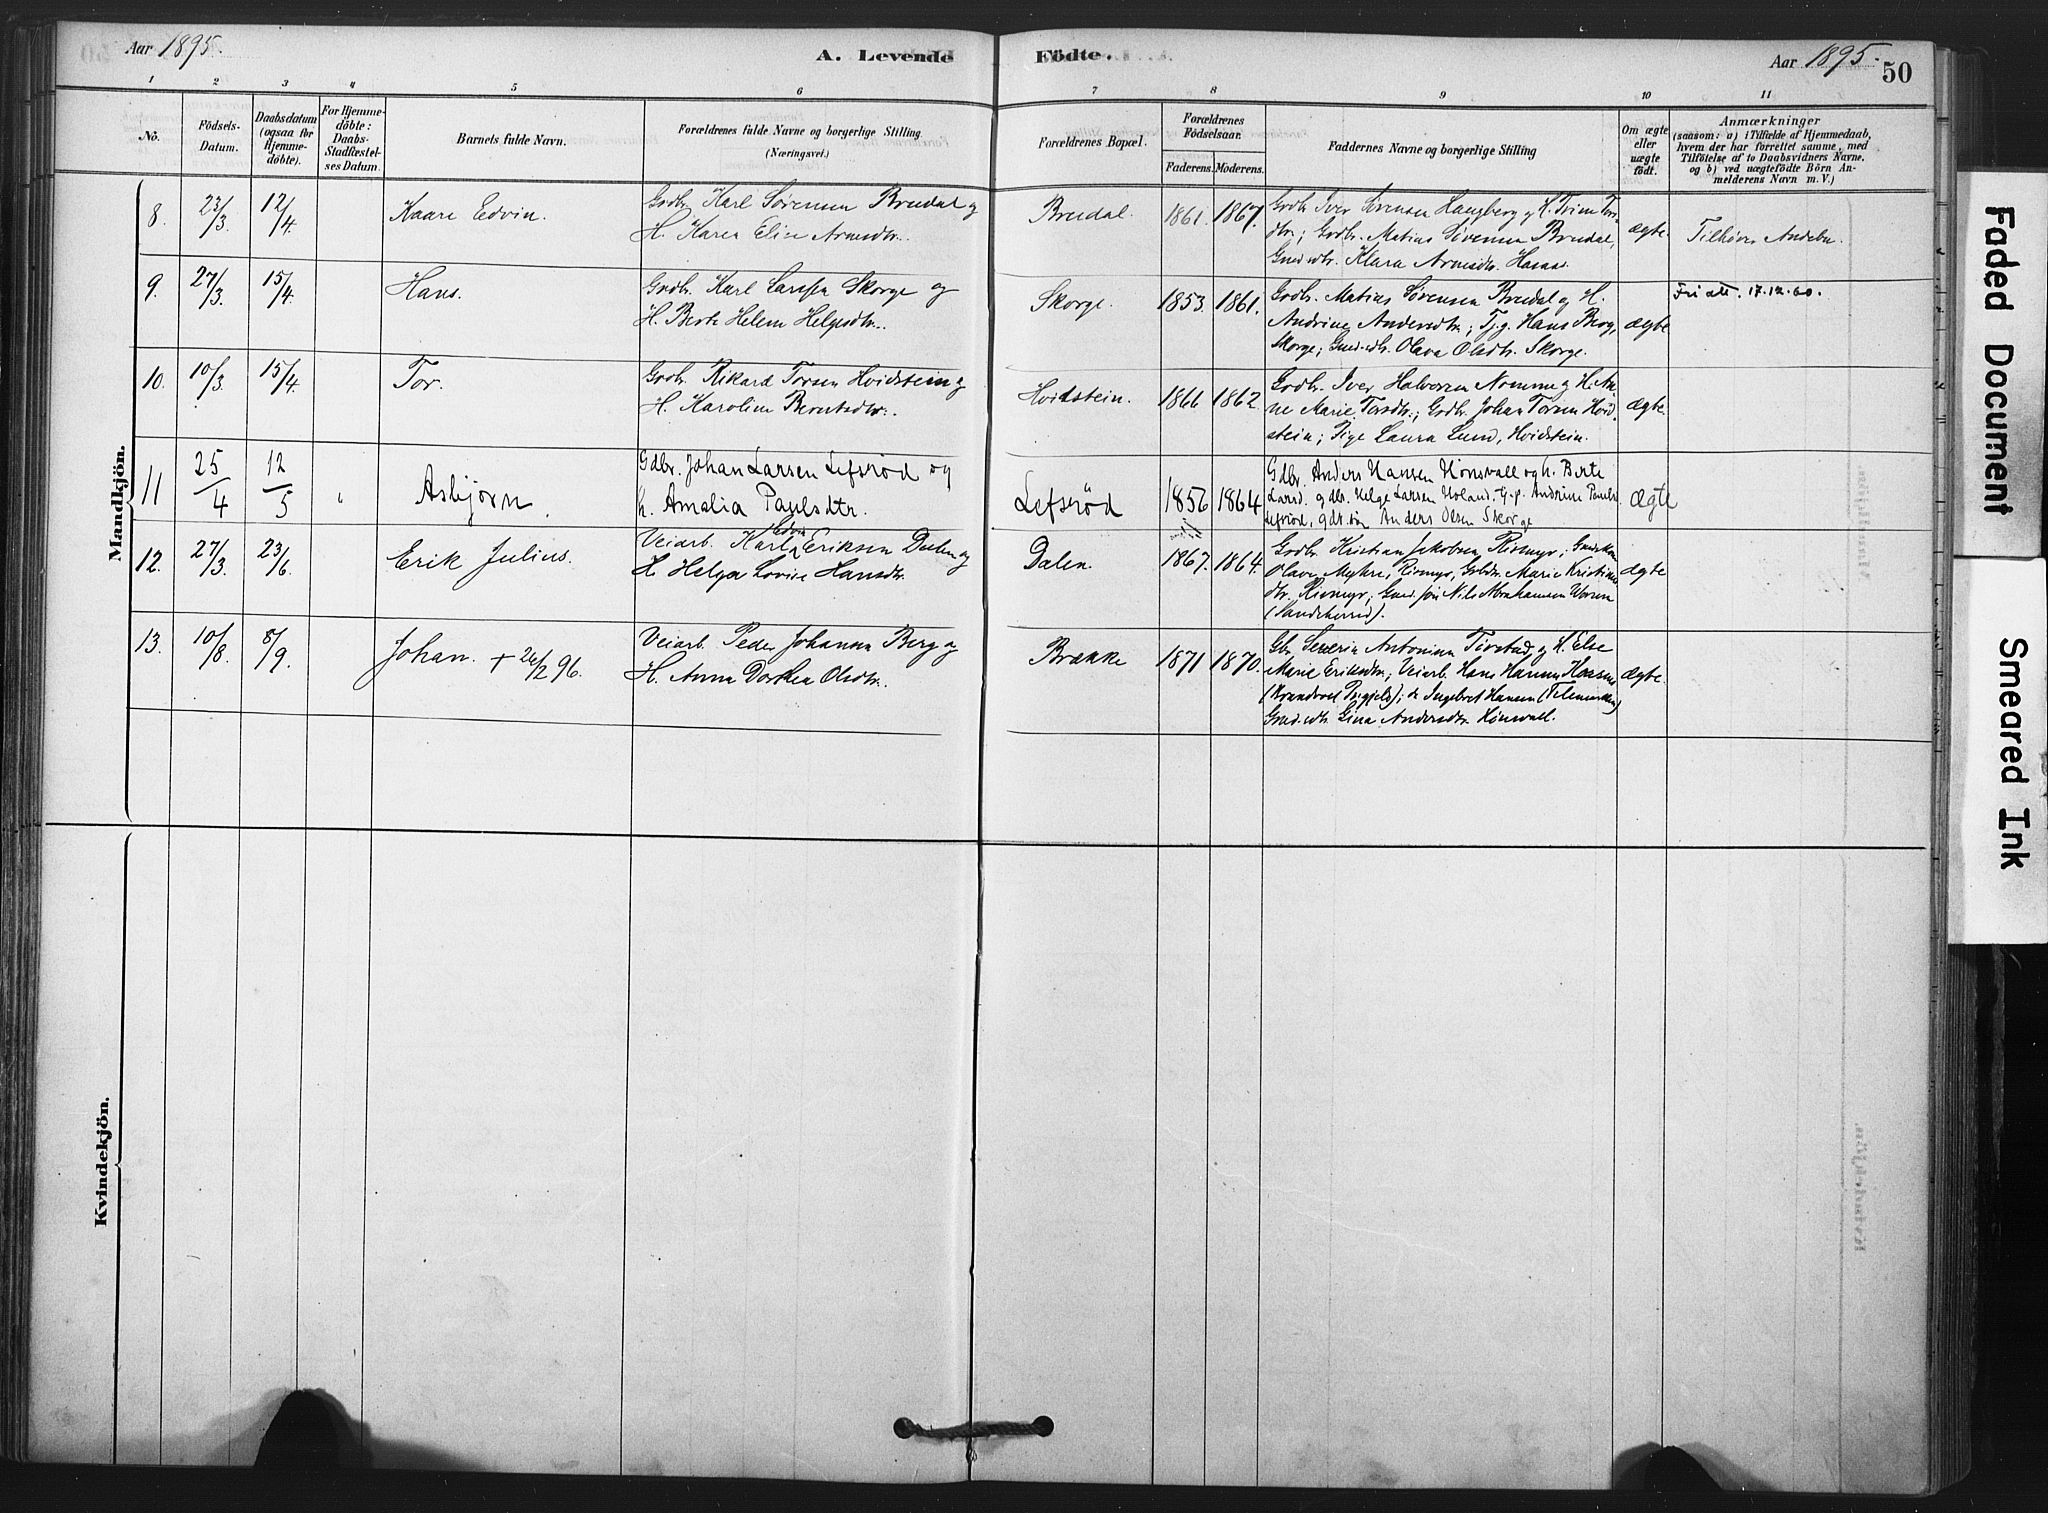 Aar 1895.
A. Levende Födte.
Aar 1895.
50
1 2 3 4 5 6 7 8 9 10 11
No.
Födsels-
Datum.
Daabsdatum
(ogsaa for
Hjemme-
döbte).
For Hjemme-
döbte:
Daabs-
Stadfæstel-
ses Datum.
Barnets fulde Navn.
Forældrenes fulde Navne og borgerlige Stilling.
(Næringsvei.)
Forældrenes Bopæl.
Forældrenes
Födselsaar.
Faderens. Moderens.
Faddernes Navne og borgerlige Stilling
Om ægte
eller
uægte
födt.
Anmærkninger
(saasom: a) i Tilfælde af Hjemmedaab,
hvem der har forrettet samme, med
Tilföielse af to Daabsvidners Navne,
og b) ved uægtefödte Börn An-
melderens Navn m. V.)
Mandkjön.
8. 23/3. 12/4. Kaare Edvin.
Grdbr. Karl Sørensen Bredal og
H. Karen Elise Arnesdtr.
Bredal. 1861. 1867.
Grdbr. Iver Sørensen Haugberg og H. Trine Tors-
dtr.; Grdbr. Matias Sørensen Bredal,
Grd.edtr. Klara Arnesdtr.
ægte. Tilhører Andebu.
9. 27/3. 15/4. Hans.
Grdbr. Karl Larsen Skorge og
H. Berte Helene Helgesdtr.
Skorge. 1853. 1861.
Grdbr. Matias Sørensen Bredal og H.
Andrine Andersdtr.; Tj.g. Hans Berg,
Skorge; Grd.edtr. Olava Olsdtr. Skorge.
ægte Fri att. 17.12.60.
10. 10/3. 15/4. Tor.
Grdbr. Rikard Torsen Hvidstein og
H. Karoline Berntsdtr.
Hvidstein. 1866 1862.
Grdbr. Iver Halvorsen Nomme og H. An-
ne Marie Torsdtr.; Grdbr. Johan Torsen Hvid-
stein; Pige Laura Lund, Hvidstein.
ægte.
11 25/4 12/5 " Asbjørn.
Gdbr. Johan Larsen Lefsrød og
h. Amalia Paulsdtr.
Lefsrød 1856 1864
Gdbr. Anders Hansen Hönsvall og h. Berte
Larsd. gdbr. Helge Larsen Holand. G.p. Andrine Pauls.
Lefsrød, gdr.søn Anders Olsen Skorge
ægte
12. 27/3. 23/6. Erik Julius.
Veiarb. Karl Edvin Eriksen Dalen og
H. Helga Lovise Hansdtr.
Dalen. 1867. 1864.
Grdbr. Kristian Jakobsen Rismyr; Grdmkone
Olava Myhre, Rismyr, Grbdtr. Marie Kristians-
dtr. Rismyr; Grd.søn Nils Abrahamsen
(Sandeherred).
ægte
13. 10/8. 8/9. Johan. + 26/2 96.
Veiarb. Peder Johannsen Berg og
H. Anna Dorthea Olsdtr.
Brække 1871 1870.
Gbr. Severin Antonsen og H. Else
Marie Eriksdtr.; Veiarb. Hans
Ingebret Hansen (Telemarken)
Grd.edtr. Gina Andersdtr. Hönsvall.
ægte.
Kvindekjön.
Faded Document
Smeared Ink